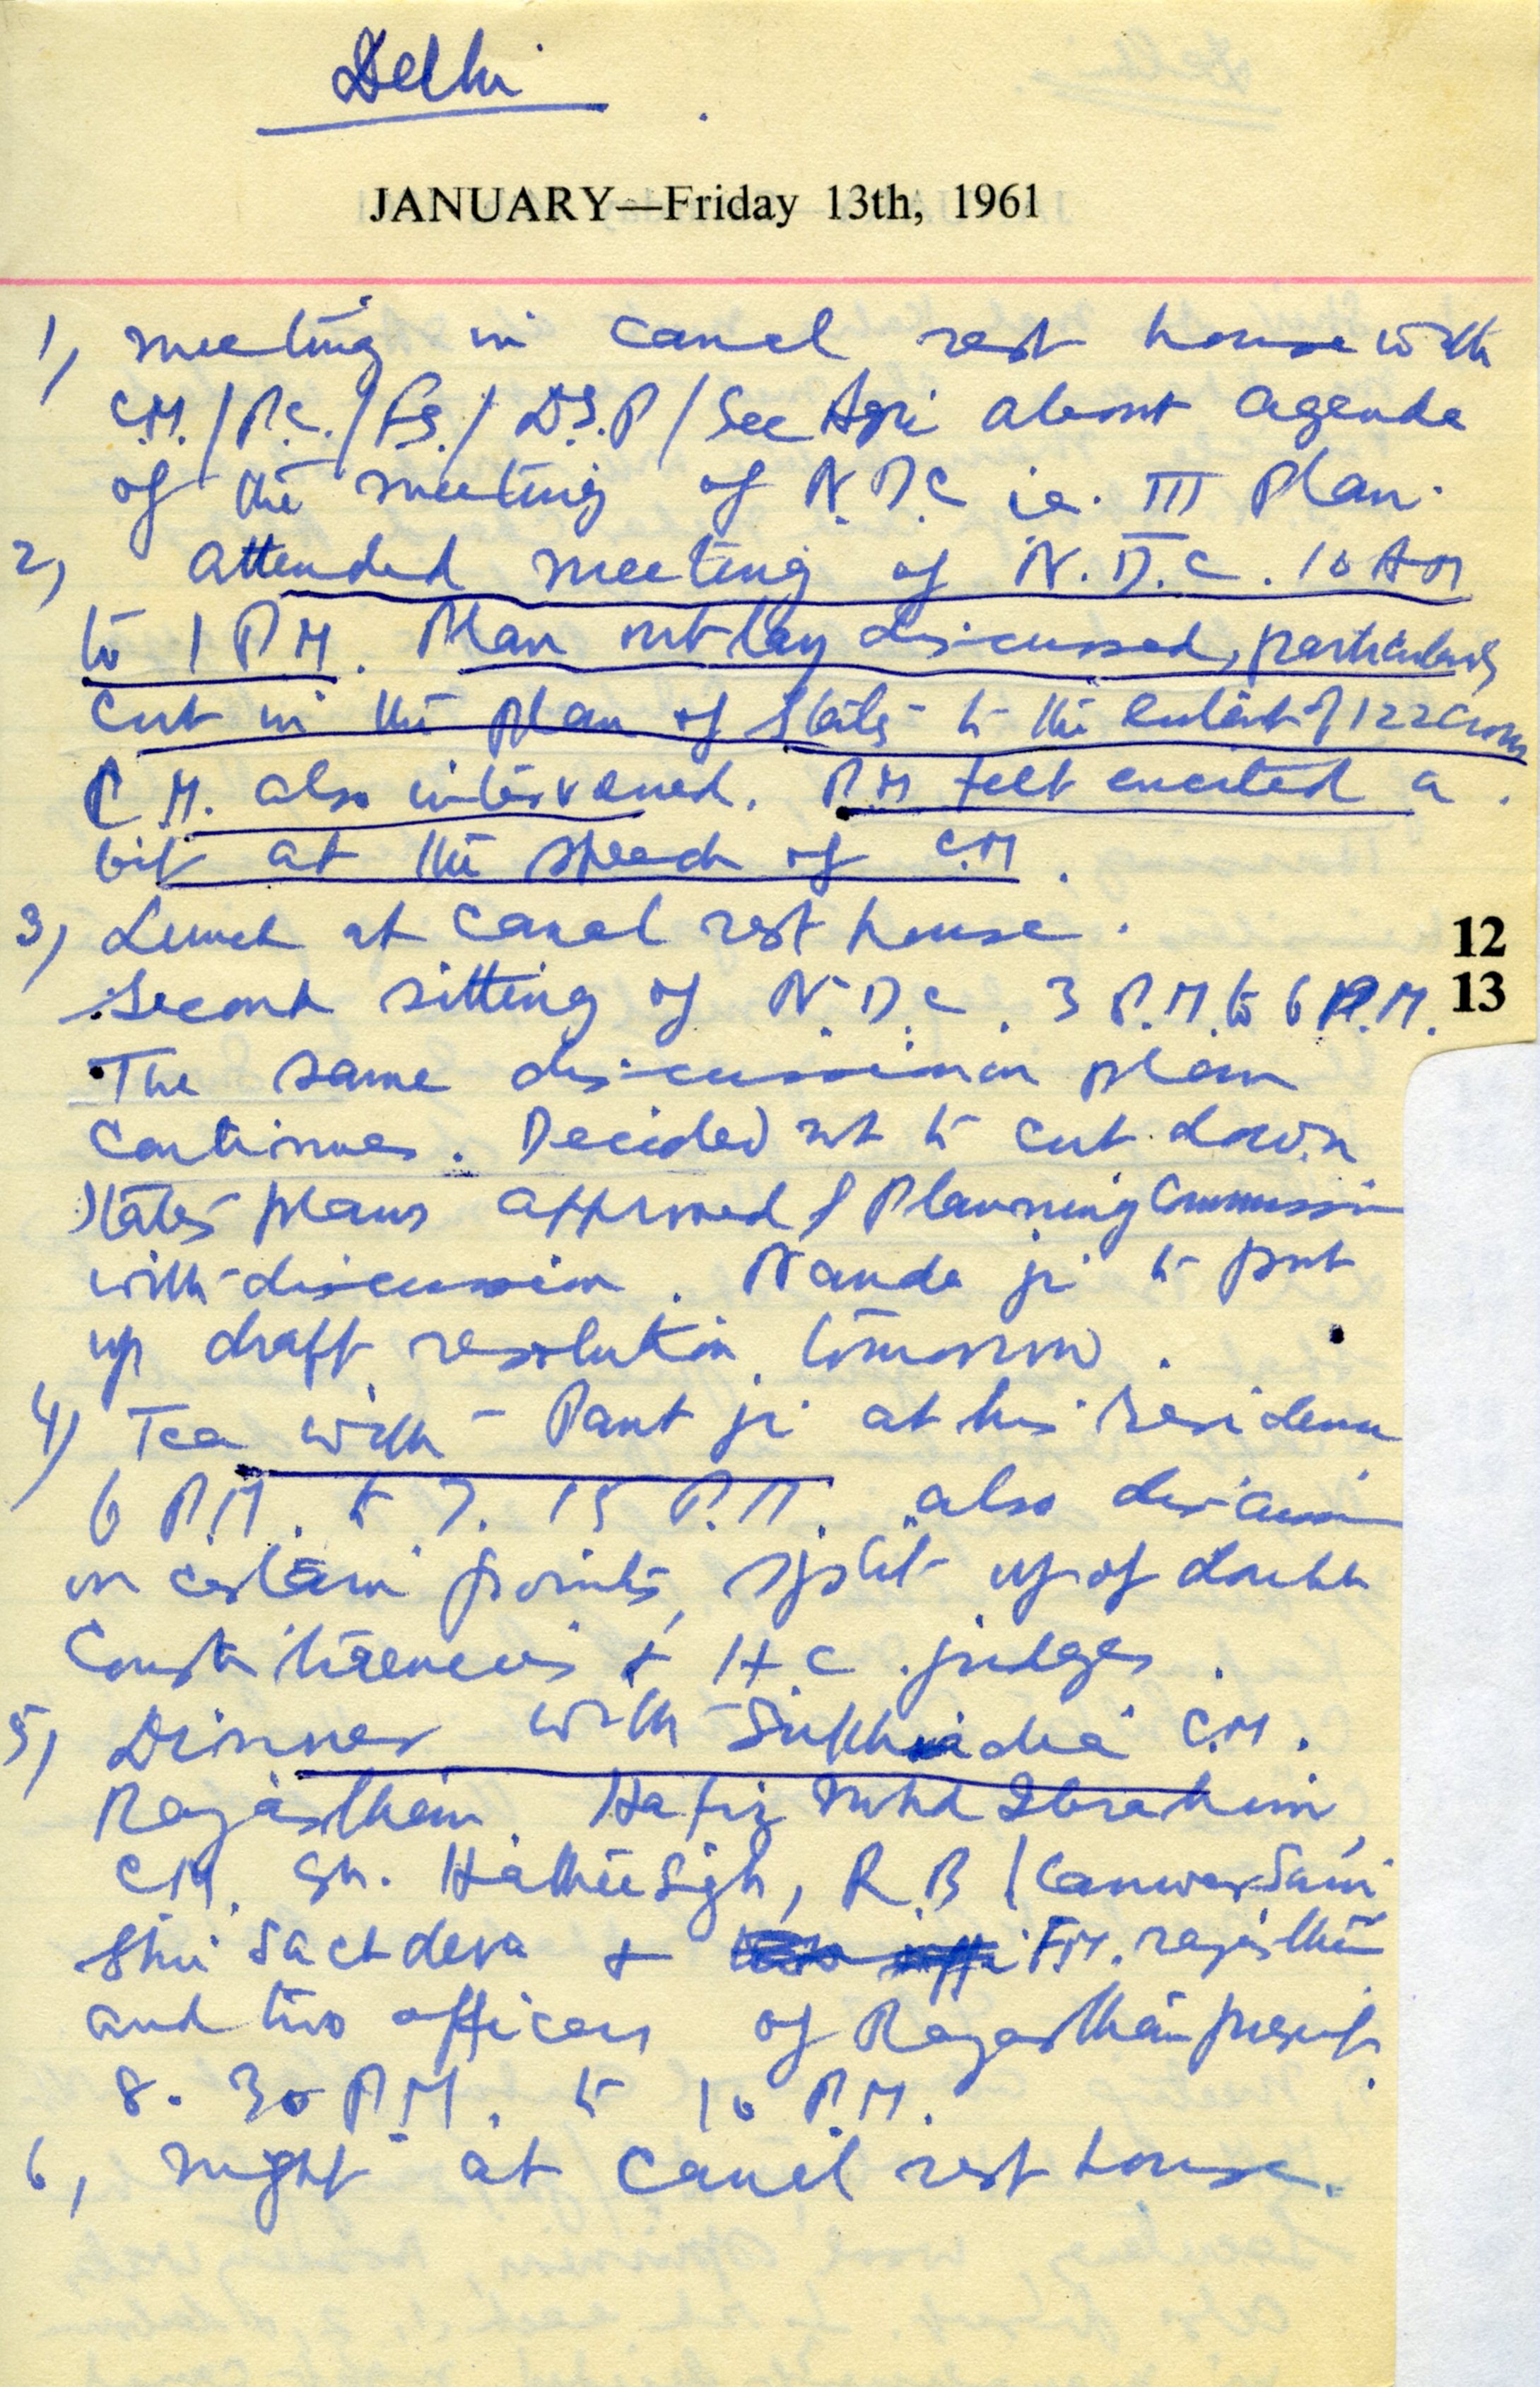 Delhi
JANUARY—Friday 13th, 1961
1, meeting in canal rest house with
C.M./P.C./F.S./D.S.P/Sec Agri about agenda
of the meeting of N.D.C i.e. III Plan.
2, attended meeting of N.D.C. 10 AM
to 1 P M. Plan outlay discussed, particularly
cut in the plan of States to the extent of 122 crores
C.M. also intervened. P.M felt excited a
bit at the speech of C.M.
3, Lunch at canal rest house.
Second sitting of N.D.C. 3 P.M. to 6 P.M.
The same discussion on plan
continues. Decided not to cut down
States plans approved Planning Commission
with discussion. Nanda ji to put
up draft resolution tomorrow.
4) Tea with Pant ji at his residence
6 P.M. to 7.15 P.M. also discussion
on certain points, split up of double
Constituencies & H.C. judges.
5, Dinner with Sukhadia C.M.
Rajasthan. Hafiz Mohd Ibrahim,
C.M. Sh. Hathi Sigh, R.B / Canwar Sain
Shri Sachdeva & F.M. rajasthan
and two officers of Rajasthan present.
8.30 P.M. to 10 P.M.
6, night at canal rest house.
12
13